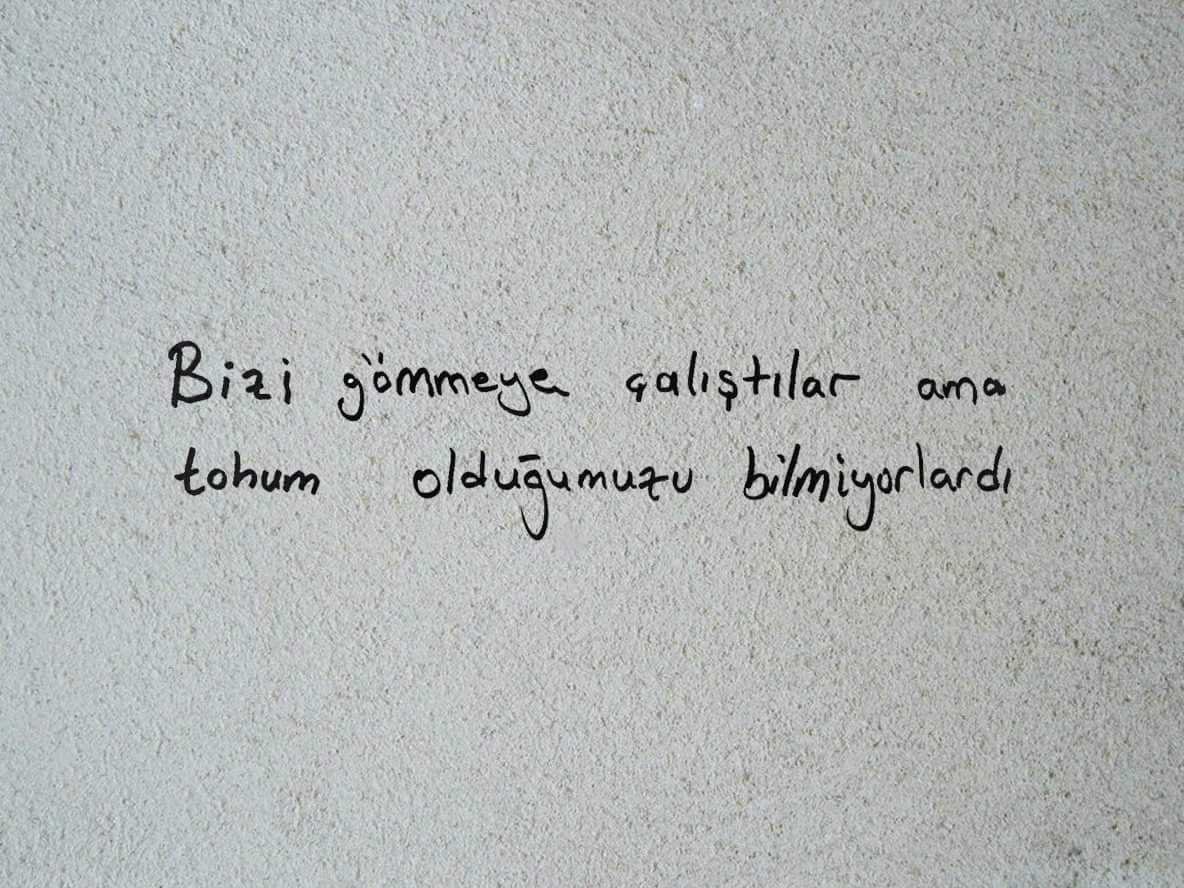 Bizi gömmeye çalıştılar ama
tohum olduğumuzu bilmiyorlardı